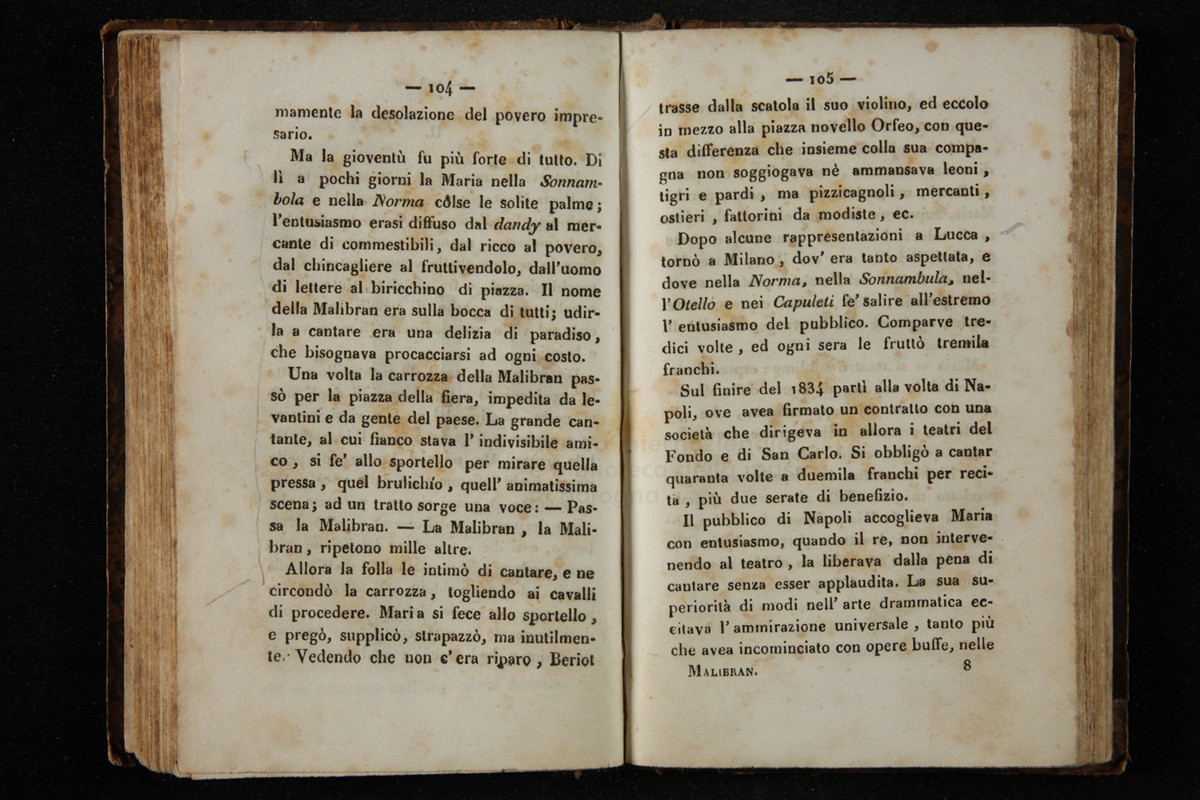 — 104 —
mamente la desolazione del povero impre-
sario.
Ma la gioventù fu più forte di tutto. Di
lì a pochi giorni la Maria nella Sonnam-
bola e nella Norma côlse le solite palme;
l'entusiasmo erasi diffuso dal dandy al mer-
cante di commestibili, dal ricco al povero,
dal chincagliere al fruttivendolo, dall'uomo
di lettere al biricchino di piazza. Il nome
della Malibran era sulla bocca di tutti; udir-
la a cantare era una delizia di paradiso,
che bisognava procacciarsi ad ogni costo.
Una volta la carrozza della Malibran pas-
sò per la piazza della fiera, impedita da le-
vantini e da gente del paese. La grande can-
tante, al cui fianco stava l' indivisibile ami-
co, si fe' allo sportello per mirare quella
pressa, quel brulichío, quell' animatissima
scena; ad un tratto sorge una voce: — Pas-
sa la Malibran. — La Malibran, la Mali-
bran, ripetono mille altre.
Allora la folla le intimò di cantare, e ne
circondò la carrozza, togliendo ai cavalli
di procedere. Maria si fece allo sportello,
e pregò, supplicò, strapazzò, ma inutilmen-
te. Vedendo che non c'era riparo, Beriot
— 105 —
trasse dalla scatola il suo violino, ed eccolo
in mezzo alla piazza novello Orfeo, con que-
sta differenza che insieme colla sua compa-
gna non soggiogava nè ammansava leoni,
tigri e pardi, ma pizzicagnoli, mercanti,
ostieri, fattorini da modiste, ec.
Dopo alcune rappresentazioni a Lucca,
tornò a Milano, dov' era tanto aspettata, e
dove nella Norma, nella Sonnambula, nel-
l'Otello e nei Capuleti fe' salire all'estremo
l' entusiasmo del pubblico. Comparve tre-
dici volte, ed ogni sera le fruttò tremila
franchi.
Sul finire del 1834 partì alla volta di Na-
poli, ove avea firmato un contratto con una
società che dirigeva in allora i teatri del
Fondo e di San Carlo. Si obbligò a cantar
quaranta volte a duemila franchi per reci-
ta, più due serate di benefizio.
Il pubblico di Napoli accoglieva Maria
con entusiasmo, quando il re, non interve-
nendo al teatro, la liberava dalla pena di
cantare senza esser applaudita. La sua su-
periorità di modi nell' arte drammatica ec-
citava l' ammirazione universale, tanto più
che avea incominciato con opere buffe, nelle
MALIBRAN. 8